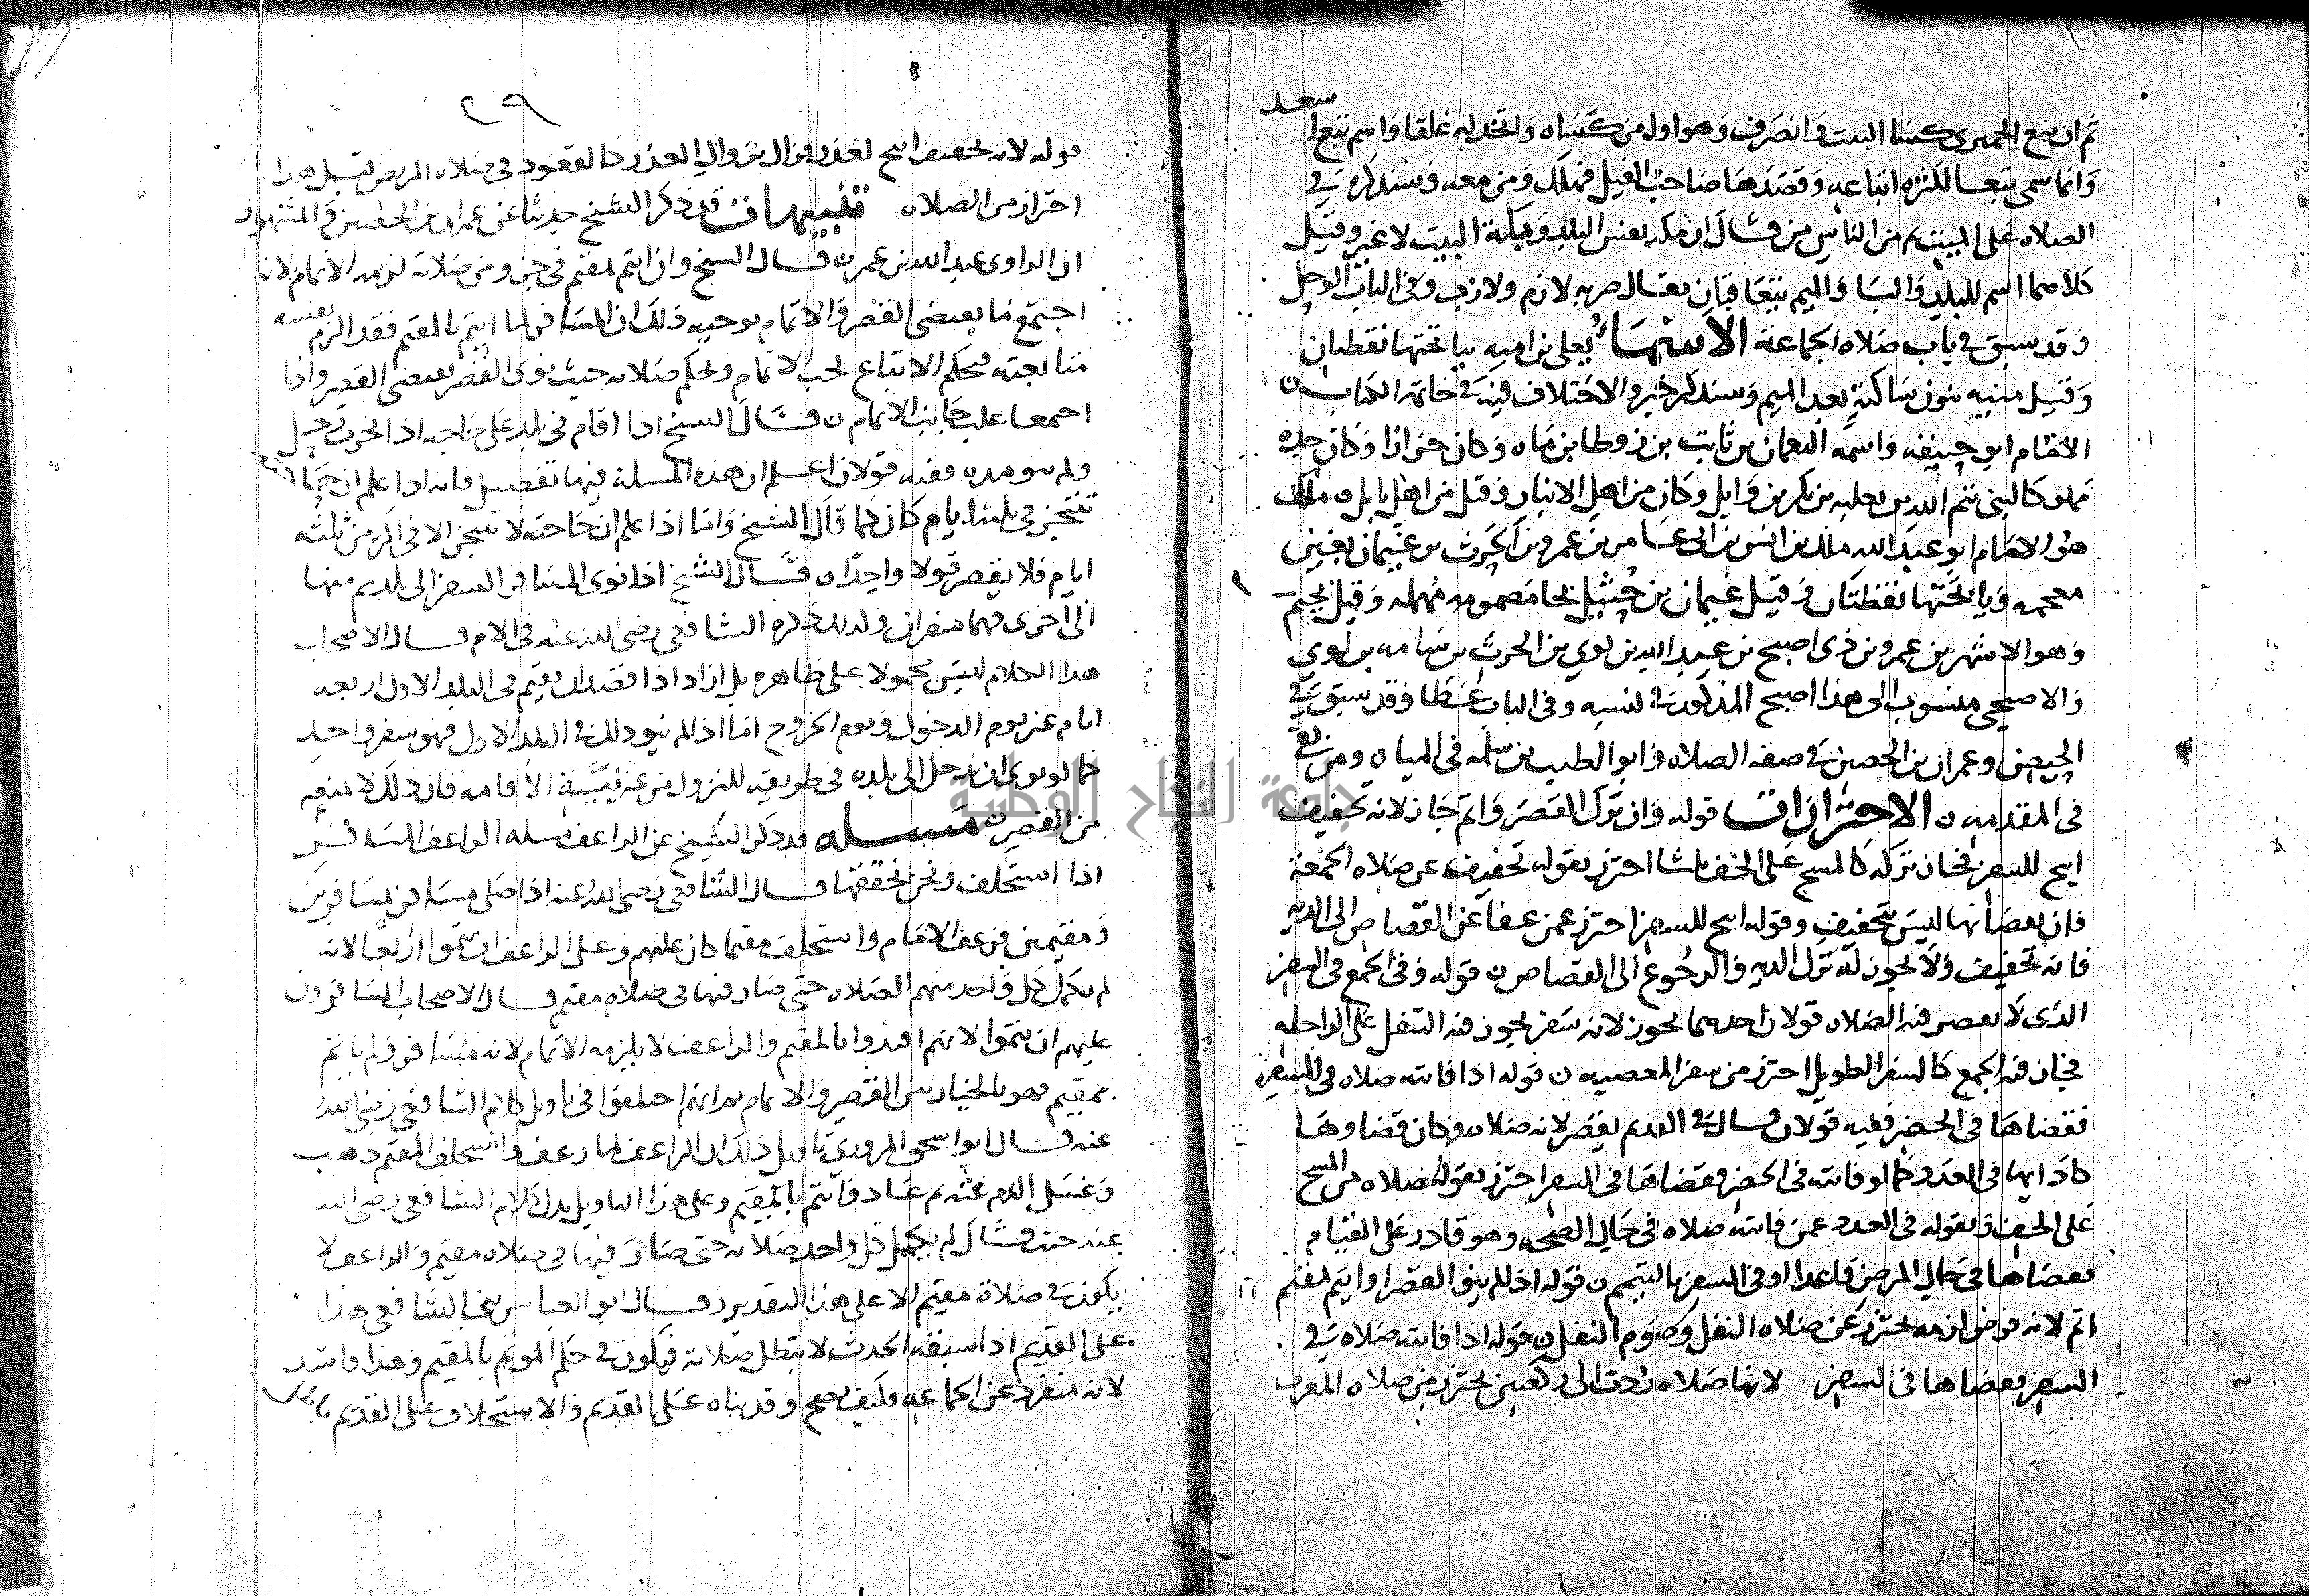 سعد
ثم ان تبع الحميرى كسا البيت وانصرف وهو اول من كساه واتخذ له غلقا واسم تبع
وانما سمى تبعا لكثره اتباعه وقصدها صاحب الفيل فهلك ومن معه وسنذكره في
الصلاه على الميت ثم من الناس من قال ان مكه نفس البلد وبكة البيت لا غير وقيل
كلاهما اسم للبلد والبا والميم يتعاقبان يقال ضربه لازم ولازب وفى الباب الوحل
وقد سبق في باب صلاه الجماعة الاسما يعلى بن اميه بيا تحتها نقطتان
وقيل منيه بنون ساكنة بعد الميم وسنذكر خبره والاختلاف فيه في خاتمه الكتاب ن
الامام ابو حنيفه واسمه النعمان بن ثابت بن زوطا بن ماه وكان خزازا وكان جده
مملوكا لبنى تيم الله بن ثعلبه بن بكر بن وايل وكان من اهل الانبار وقيل من اهل بابل ن ملك
هو الامام ابو عبد الله ملك بن انس بن ابى عامر بن عمرو بن الحرث بن غيمان بغين
معجمه ويا تحتها نقطتان وقيل عثمان بن خثيل بخا مضمومه مهمله وقيل بجيم
وهو الاشهر بن عمرو بن ذى اصبح بن عبد الله بن لوى بن الحرث بن سامه بن لوى
والاصبحى منسوب الى هذا اصبح المذكور في نسبه وفى الباب عطا وقد سبق في
الحيض وعمران بن الحصين في صفه الصلاه وابو الطيب بن سلمه فى المياه ومن بقى
فى المقدمه ن الاحترازات قوله وان ترك القصر واتم جاز لانه تخفيف
ابيح للسفر فجاز تركه كالمسح على الخف ثلثا احترز بقوله تخفيف عن صلاه الجمعة
فان بعضا نها ليس بتخفيف وقوله ابيح للسفر احترز عمن عفا عن القصاص الى الديه
فانه تخفيف ولا يجوز له ترك الديه والرجوع الى القصاص ن قوله وفى الجمع فى السفر
الذى لا يقصر فيه الصلاه قولان احدهما يجوز لانه سفر يجوز فيه التنفل على الراحله
فجاز فيه الجمع كالسفر الطويل احترز من سفر المعصيه ن قوله اذا فاتته صلاه فى السفر
فقضاها فى الحضر ففيه قولان قال في القديم يقصر لانه صلاه وكان قضاوها
كادايها فى العدد كما لو فاتته فى الحضر فقضاها فى السفر احترز بقوله صلاه من المسح
على الخف وبقوله فى العدد عمن فاتته صلاه فى حال الصحه وهو قادر على القيام
فقضاها فى حال المرض قاعدا او فى السفر بالتيمم ن قوله اذا لم ينو القصر او ايتم بمقيم
اتم لانه فرض لزمه يحترز عن صلاه النفل وصوم النفل ن قوله اذا فاتته صلاه في
السفر فقضاها فى السفر لانها صلاه ردت الى ركعتين يحترز من صلاه المغرب
٤٩
قوله لانه تخفيف ابيح لعذر فزال بزوال العذر كالقعود فى صلاه المريض قيل هذا
احتراز من الصلاه تنبيهات قد ذكر الشيخ حديثا عن عمران بن الحصين والمشهور
ان الراوى عبد الله بن عمر ن قال الشيخ وان ايتم بمقيم فى جزو من صلاته لزمه الاتمام لانه
اجتمع ما يقتضى القصر والاتمام توجيه ذلك ان المسافر لما ايتم بالمقيم فقد الزم نفسه
متابعته فبحكم الاتباع يجب الاتمام وبحكم صلاته حيث نوى القصر يقتضى القصر واذا
اجتمعا غلب جانب الاتمام ن قال الشيخ اذا اقام فى بلد على حاجه اذا انجزت رحل
ولم ينو مده ففيه قولان اعلم ان هذه المسله فيها تفصيل فانه اذا علم ان حاجته
تتنجز فى ثلثه ايام كان كما قال الشيخ واما اذا علم ان حاجته لا تتنجز الا فى اكثر من ثلثه
ايام فلا يقصر قولا واحدا ن قال الشيخ اذا نوى المسافر السفر الى بلد ثم منها
الى اخرى فهما سفران ولذلك ذكره الشافعى رضى الله عنه فى الام قال الاصحاب
هذا الكلام ليس محمولا على ظاهره بل اراد اذا قصد ان يقيم فى البلد الاول اربعه
ايام غير يوم الدخول ويوم الخروج اما اذا لم ينو ذلك في البلد الاول فهو سفر واحد
كما لو نوى ان يدخل الى بلده فى طريقه للنزول من غير نية الاقامه فان ذلك لا يمنعه
من القصر ن مسله قد ذكر الشيخ عن الراعف مسله الراعف المسافر
اذا استخلف ونحن نحققها قال الشافعى رضى الله عنه اذا صلى مسافر بمسافرين
ومقيمين فرعف الامام واستخلف مقيما كان عليهم وعلى الراعف ان يتموا اربعا لانه
لم يكمل كل واحد منهم الصلاه حتى صار فيها فى صلاه مقيم قال الاصحاب المسافرون
عليهم ان يتموا لانهم اقتدوا بالمقيم والراعف لا يلزمه الاتمام لانه مسافر ولم ياتم
بمقيم فهو بالخيار بين القصر والاتمام ثم انهم اختلفوا فى تاويل كلام الشافعى رضى الله
عنه قال ابو اسحق المروزى تاويل ذلك ان الراعف لما رعف واستخلف المقيم ذهب
وغسل الدم عنه ثم عاد فايتم بالمقيم وعلى هذا التاويل يدل كلام الشافعى رضى الله
عنه حيث قال لم يكمل كل واحد صلاته حتى صار فيها فى صلاه مقيم والراعف لا
يكون في صلاة مقيم الا على هذا التقدير وقال ابو العباس بنى الشافعى هذا
على القديم اذا سبقه الحدث لا تبطل صلاته فيكون في حكم الموتم بالمقيم وهذا فاسد
لانه منفرد عن الجماعه فكيف يصح وقد بناه على القديم والاستخلاف على القديم
جامعة النجاح الوطنية